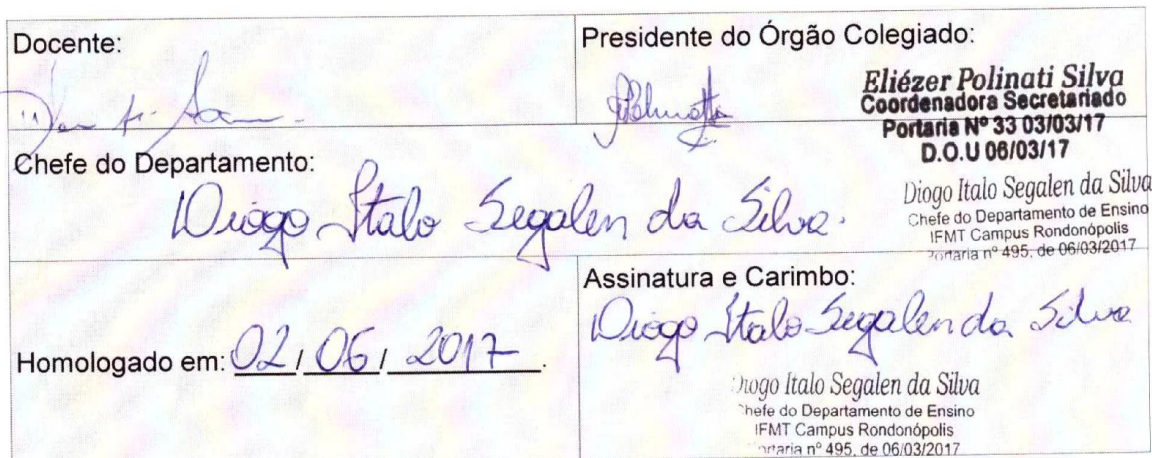 Docente:
Presidente do Órgão Colegiado:
Eliézer Polinati Silva
Coordenadora Secretariado
Portaria Nº 33 03/03/17
D.O.U 06/03/17
Chefe do Departamento:
Diogo Italo Segalen da Silva.
Diogo Italo Segalen da Silva
Chefe do Departamento de Ensino
IFMT Campus Rondonópolis
Portaria nº 495, de 06/03/2017
Homologado em: 02/06/2017.
Assinatura e Carimbo:
Diogo Italo Segalen da Silva
Diogo Italo Segalen da Silva
Chefe do Departamento de Ensino
IFMT Campus Rondonópolis
Portaria nº 495, de 06/03/2017